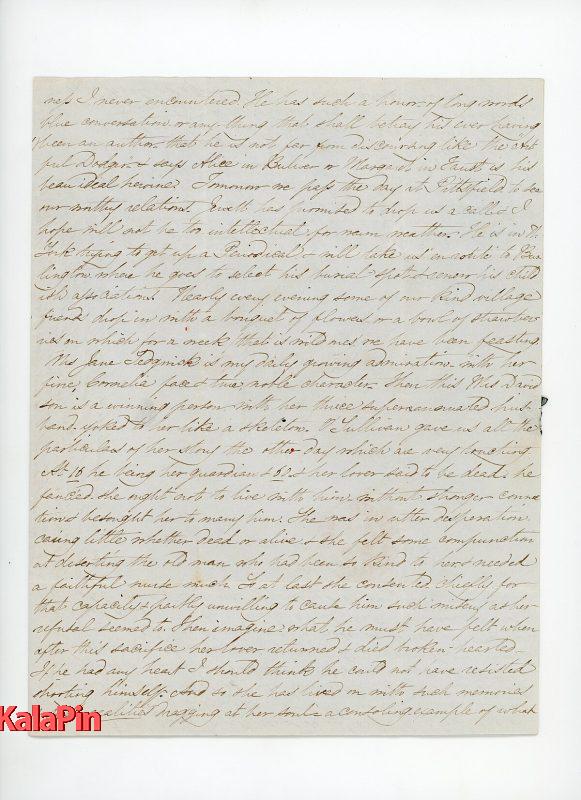 ness I never encountered. He has such a horror of long words
blue conversation or any thing that shall betray his ever having
been an author that he is not far from discoursing like the Art
ful Dodger & says Alice in Bulwer or Margaret in Faust is his
beau ideal heroine. Tomorrow we pass the day at Pittsfield to see
our worthy relations. has promised to drop us a call & I
hope will not be too intellectual for warm weather. He is in N.
York trying to get up a Periodical & will take us en route to Bur
lington where he goes to select his burial spot & renew his child
ish associations. Nearly every evening some of our kind village
friends drop in with a bouquet of flowers or a bowl of strawber
ries on which for a week that is wild ones we have been feasting.
Mrs Jane Sedgwick is my daily growing admiration with her
fine Cornelia face & true noble character. Then this Mrs David
son is a winning person with her thrice superannuated hus
band yoked to her like a skeleton. O'Sullivan gave us all the
particulars of her story the other day which are very touching.
At 16 he being her guardian & 60 & her lover said to be dead. he
fancied she ought not to live with him without stronger connec
tions besought her to marry him. She was in utter desperation
caring little whether dead or alive & she felt some compunction
at deserting the old man who had been so kind to her & needed
a faithful nurse much so at last she consented chiefly for
that capacity & partly unwilling to cause him such misery as her
refusal seemed to. Then imagine what he must have felt when
after this sacrifice her lover returned & died broken-hearted.
If he had any heart I should think he could not have resisted
shooting himself. And so she has lived on with such memories
realities nagging at her soul - a consoling example of what
KalaPin